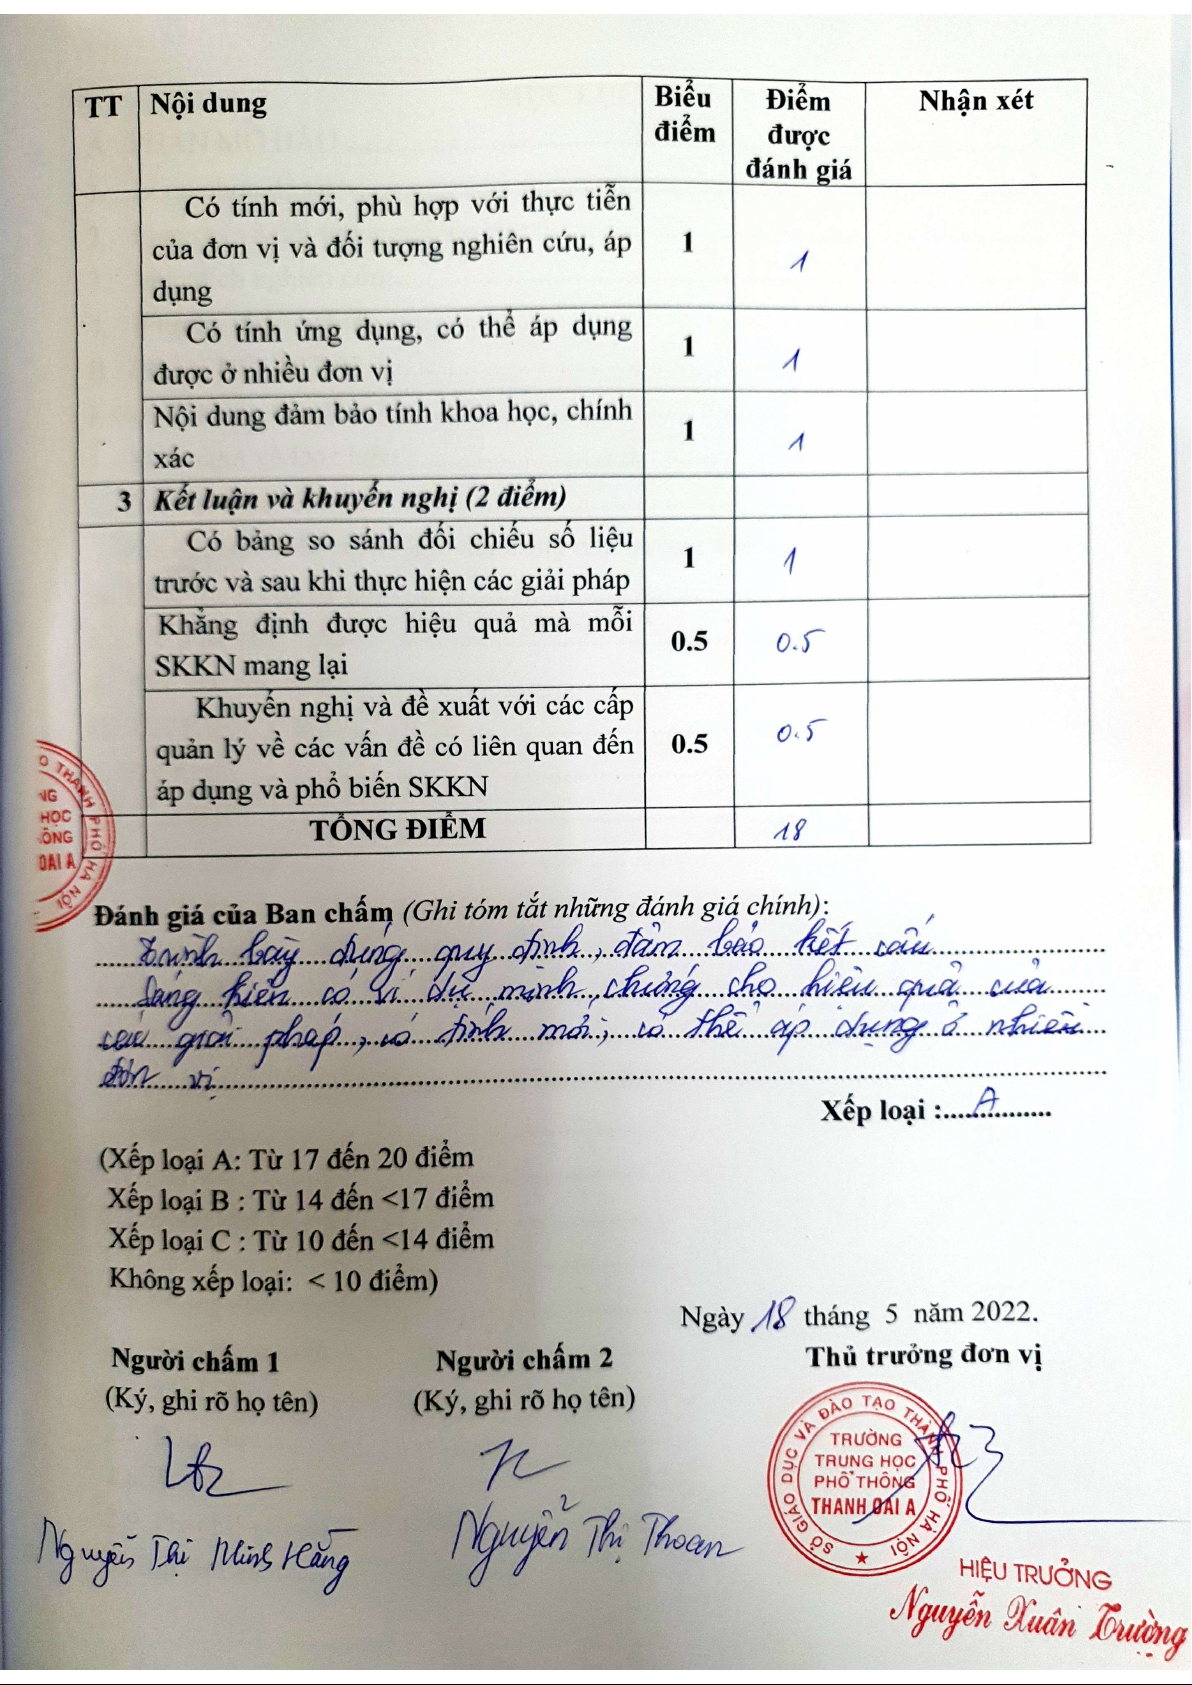 TT Nội dung Biểu điểm Điểm được đánh giá Nhận xét
Có tính mới, phù hợp với thực tiễn
của đơn vị và đối tượng nghiên cứu, áp 1 1
dụng
Có tính ứng dụng, có thể áp dụng 1 1
được ở nhiều đơn vị
Nội dung đảm bảo tính khoa học, chính 1 1
xác
3 Kết luận và khuyến nghị (2 điểm)
Có bảng so sánh đối chiếu số liệu 1 1
trước và sau khi thực hiện các giải pháp
Khẳng định được hiệu quả mà mỗi 0.5 0.5
SKKN mang lại
Khuyến nghị và đề xuất với các cấp
quản lý về các vấn đề có liên quan đến 0.5 0.5
áp dụng và phổ biến SKKN
TỔNG ĐIỂM 18
Đánh giá của Ban chấm (Ghi tóm tắt những đánh giá chính):
Trình bày đúng quy định, đảm bảo kết cấu
Sáng kiến có ví dụ minh chứng cho hiệu quả của
các giải pháp, có tính mới, có thể áp dụng ở nhiều
đơn vị
Xếp loại :...A...
(Xếp loại A: Từ 17 đến 20 điểm
Xếp loại B : Từ 14 đến <17 điểm
Xếp loại C : Từ 10 đến <14 điểm
Không xếp loại: < 10 điểm)
Ngày 18 tháng 5 năm 2022.
Người chấm 1 Người chấm 2 Thủ trưởng đơn vị
(Ký, ghi rõ họ tên) (Ký, ghi rõ họ tên)
SỞ GIÁO DỤC VÀ ĐÀO TẠO THÀNH PHỐ HÀ NỘI
TRƯỜNG
TRUNG HỌC
PHỔ THÔNG
THANH OAI A
Nguyễn Thị Minh Hằng Nguyễn Thị Thoan
HIỆU TRƯỞNG
Nguyễn Xuân Trường